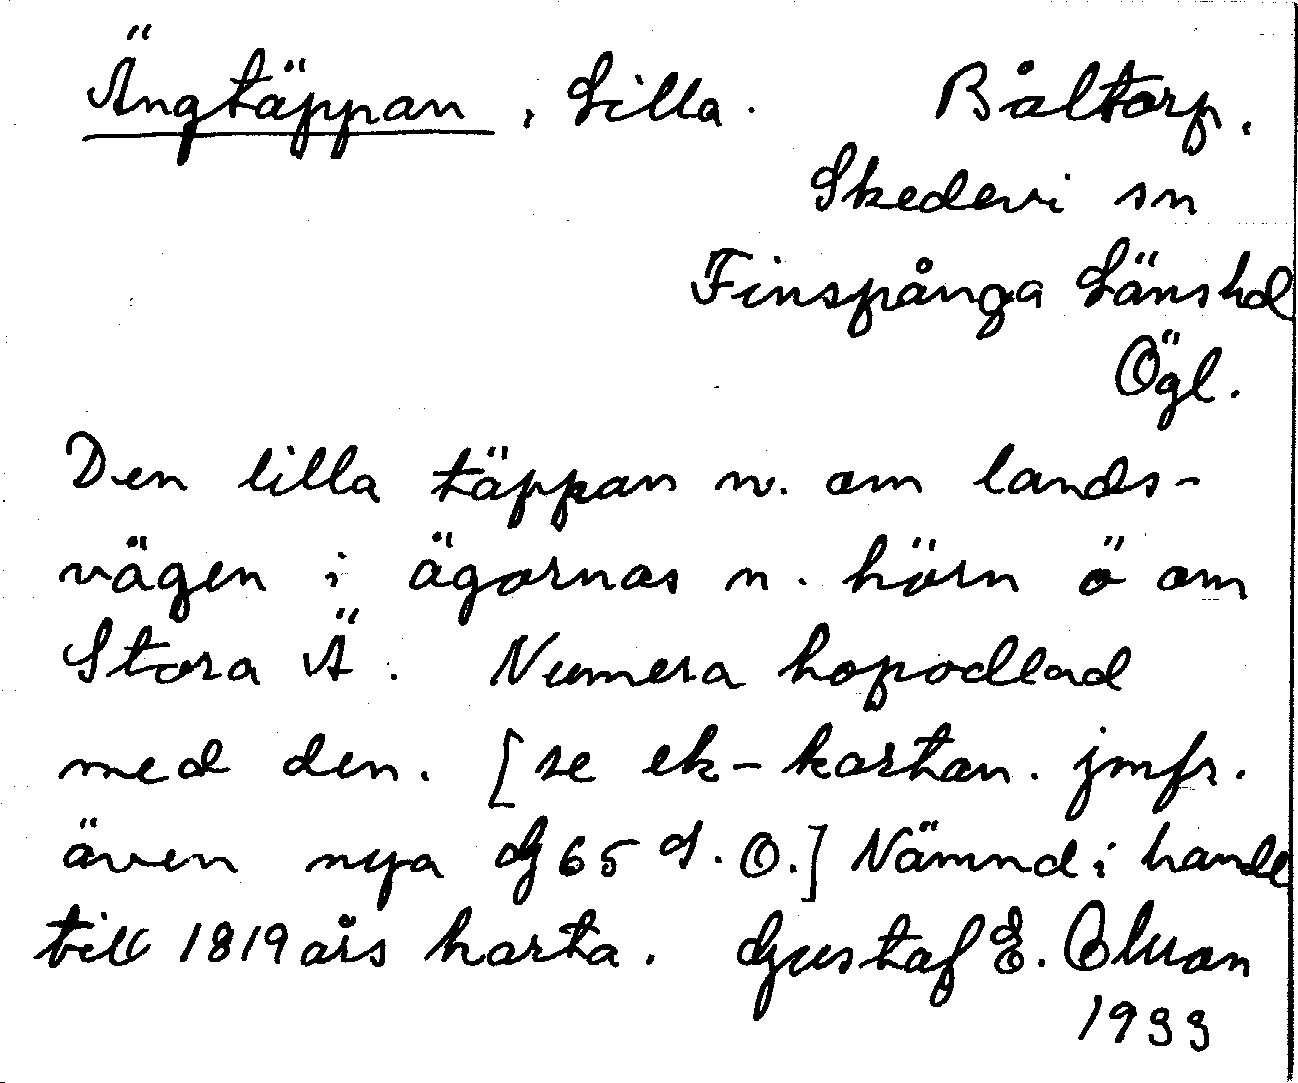 Ängtäppan, Lilla. Båltorp.
Skedevi sn
Finspånga Länshd
Ögl.
Den lilla täppan n. om lands-
vägen i ägornas n. hörn ö om
Stora Ä. Numera hopodlad
med den. [se ek-kartan. jmfr.
även nya G65 d. O.] Nämnd i handl
till 1819 års karta. Gustaf E.
1933